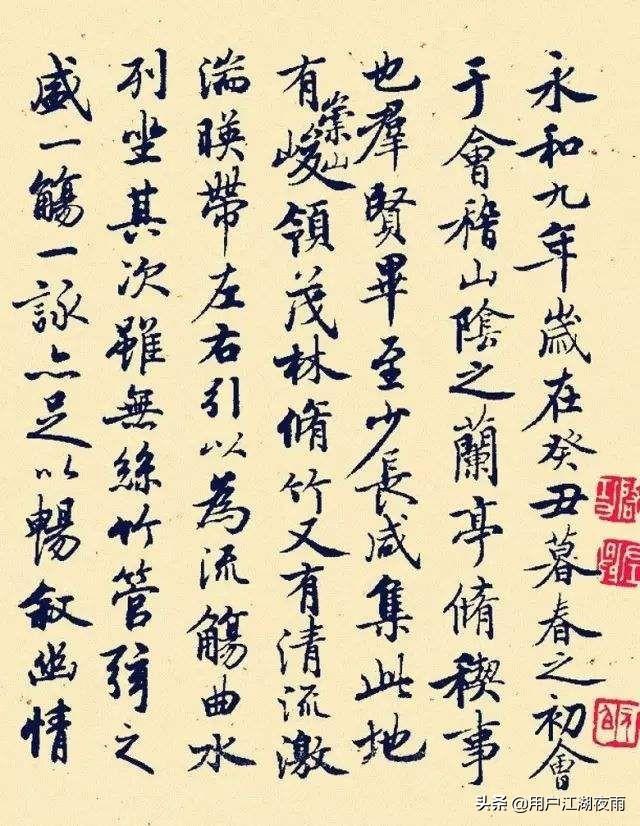 永和九年歲在癸丑暮春之初會
于會稽山陰之蘭亭脩稧事
也羣賢畢至少長咸集此地
有崇山峻領茂林脩竹又有清流激
湍暎帶左右引以為流觴曲水
列坐其次雖無絲竹管弦之
盛一觴一詠亦足以暢敘幽情
头条 @用户江湖夜雨